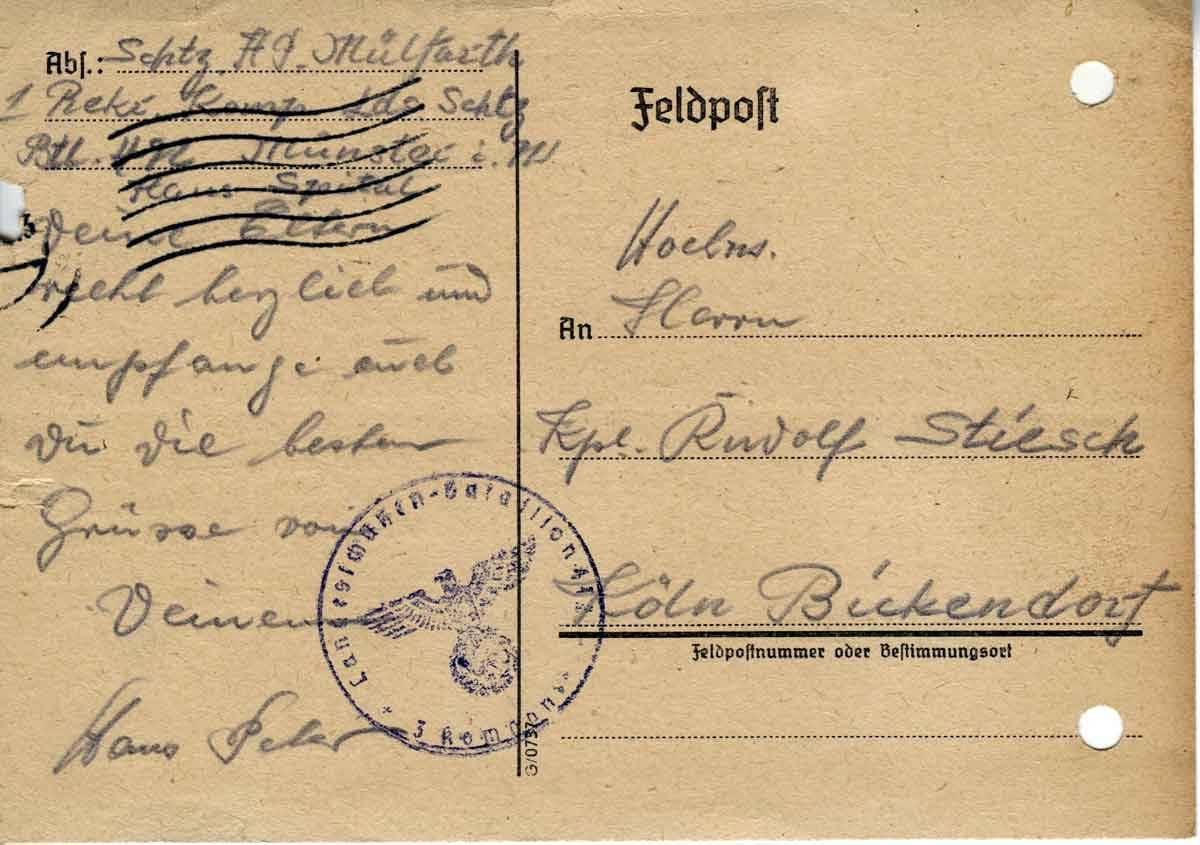 Abs.: Schtz. H.P. Mülfarth
1 Komp. Lds. Schtz
Btl. Münster i. W
Haus Spital
Deine Eltern
recht herzlich und
empfange auch
Du die besten
Grüsse von
Deinem
Hans Peter
Feldpost
Hochw.
An Herrn
Kpl. Rudolf Stiesch
Köln Bickendorf
Feldpostnummer oder Bestimmungsort
G/0737
Landesschützen-Bataillon
3 Kompanie